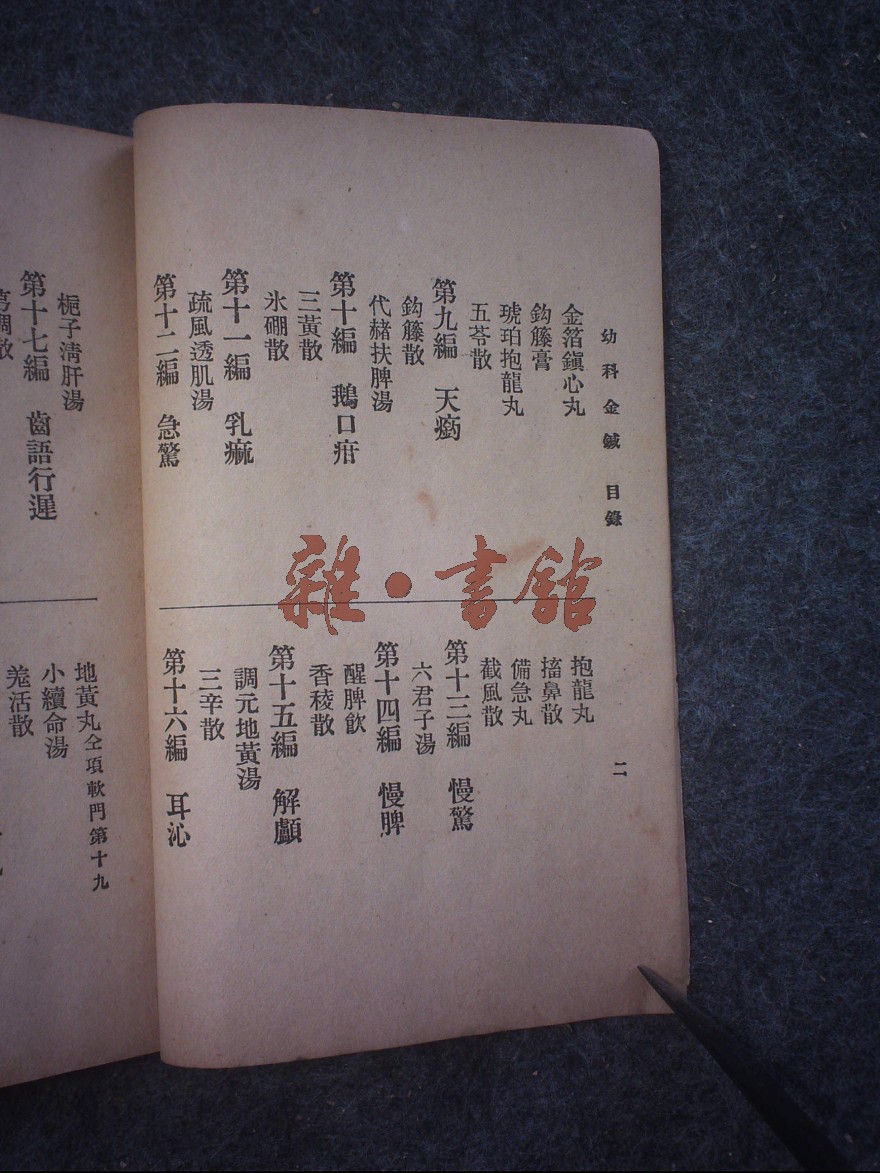 幼科金鍼 目錄
二
金箔鎭心丸
鈎籐膏
琥珀抱龍丸
五苓散
第九編 天瘹
鈎籐散
代赭扶脾湯
第十編 鵝口疳
三黃散
氷硼散
第十一編 乳痲
疏風透肌湯
第十二編 急驚
抱龍丸
搐鼻散
備急丸
截風散
第十三編 慢驚
六君子湯
第十四編 慢脾
醒脾飲
香稜散
第十五編 解顱
調元地黃湯
三辛散
第十六編 耳沁
梔子淸肝湯
第十七編 齒語行遲
地黃丸仝項軟門第十九
小續命湯
羗活散
雜·書館